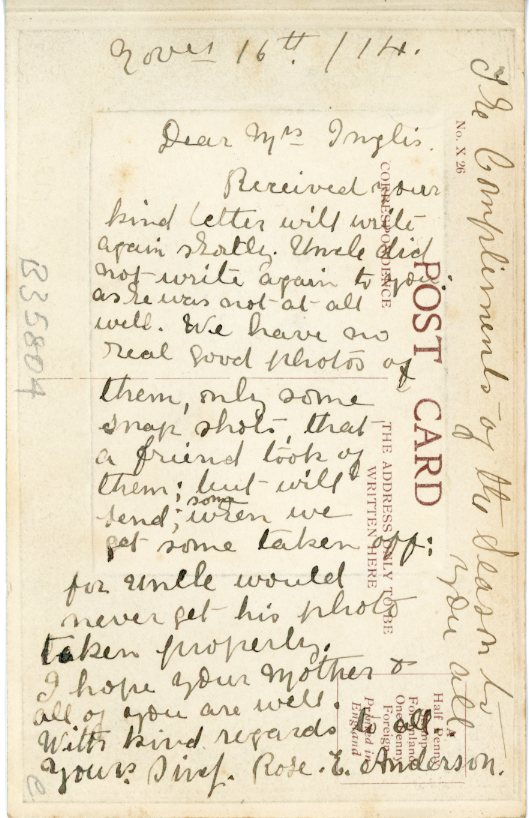 Novr 16th /14.
Dear Mrs Inglis.
Received your
kind letter will write
again shortly. Uncle did
not write again to you:
as he was not at all
well. We have no
real good photos of
them, only some
snap shots, that
a friend took of
them; but will
send; some when we
get some taken off:
for Uncle would
never get his photo
taken properly.
I hope your Mother &
all of you are well.
With kind regards to all
Yours Sincf. Rose. E. Anderson.
The Compliments of the Season to
you all
No. X 26
POST CARD
CORRESPONDENCE
THE ADDRESS ONLY TO BE
WRITTEN HERE
Half Penny
Stamp
One Penny
Foreign
Printed in
England
B35804